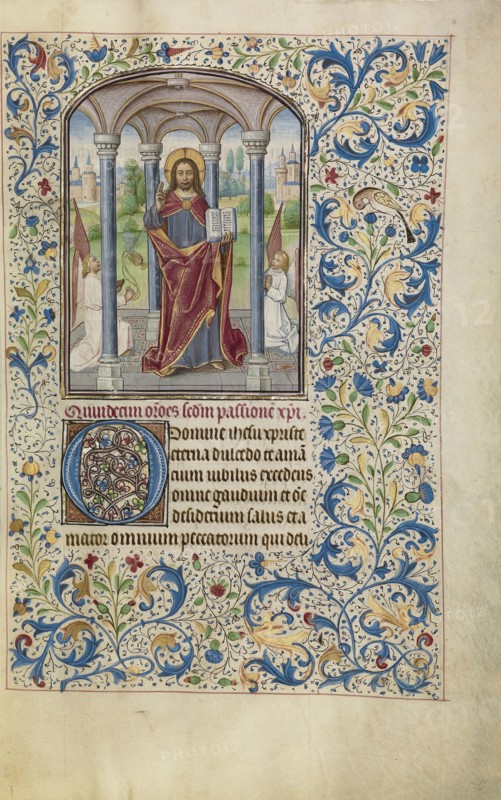 Quindecim orōes sedm passionē xpi.
O Domine ihesu xpriste
eterna dulcedo et amā
cium iubilus excedens
omne gaudium et oē
desiderium salus et a
mator omnium peccatorum qui deli
PHOTO12